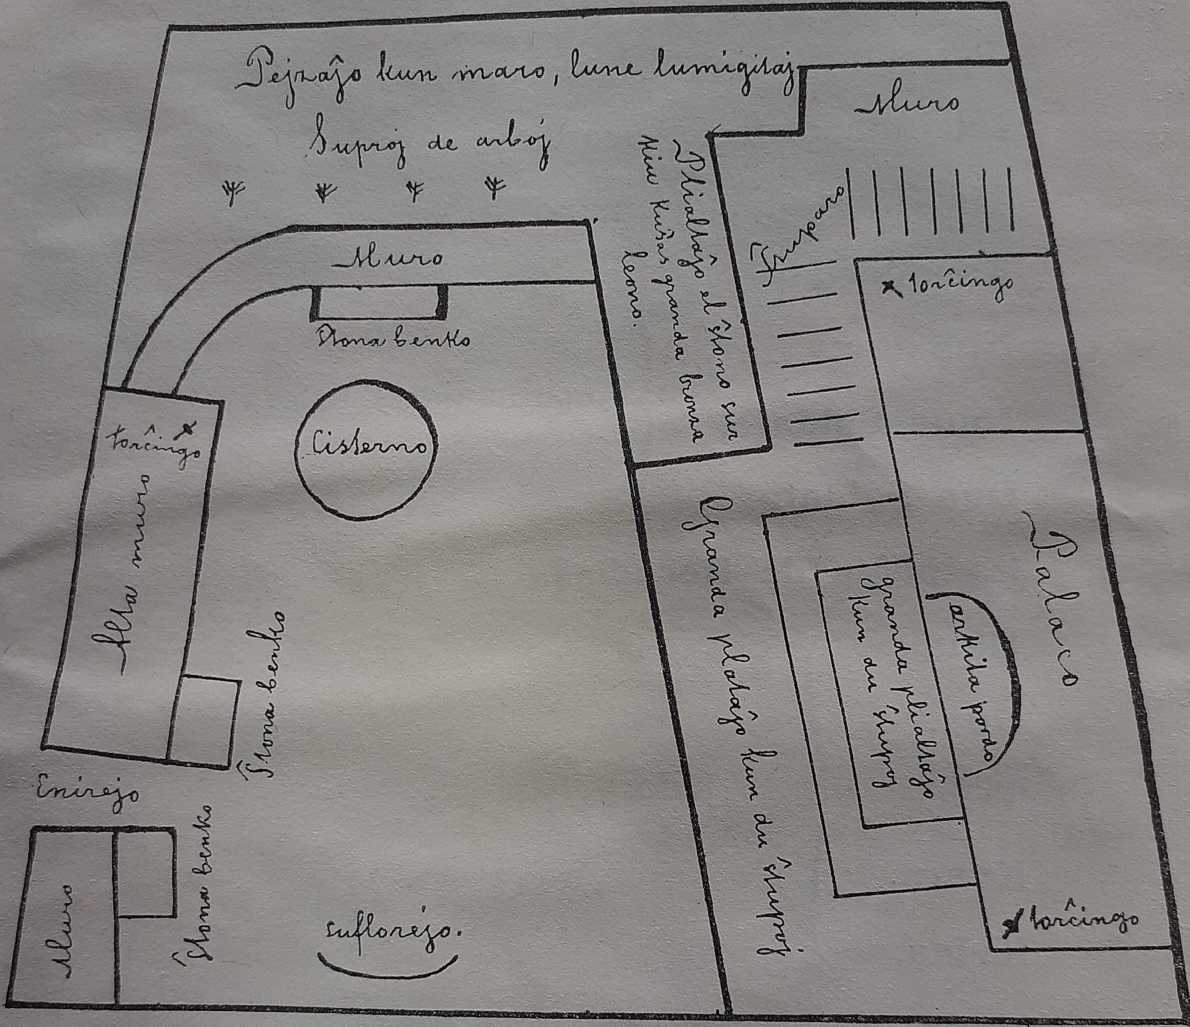 Pejzaĝo kun maro, lune lumigitaj
Suproj de arboj
Muro
Muro
Plialtaĵo el ŝtono sur
kiu kuŝas granda bronza
leono.
torĉingo
Ŝtona benko
Cisterno
torĉingo
Alta muro
Ŝtona benko
Enirejo
Muro
Ŝtona benko
suflorejo.
Granda plataĵo kun du ŝtupoj
granda plialtaĵo
kun du ŝtupoj
arkita pordo
Palaco
torĉingo